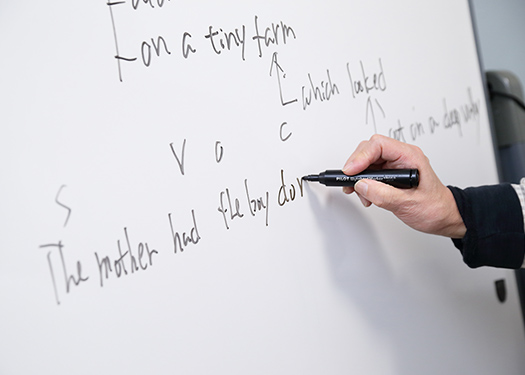 on a tiny farm
which looked
out in a deep valley
S V O C
The mother had the boy dor
PILOT